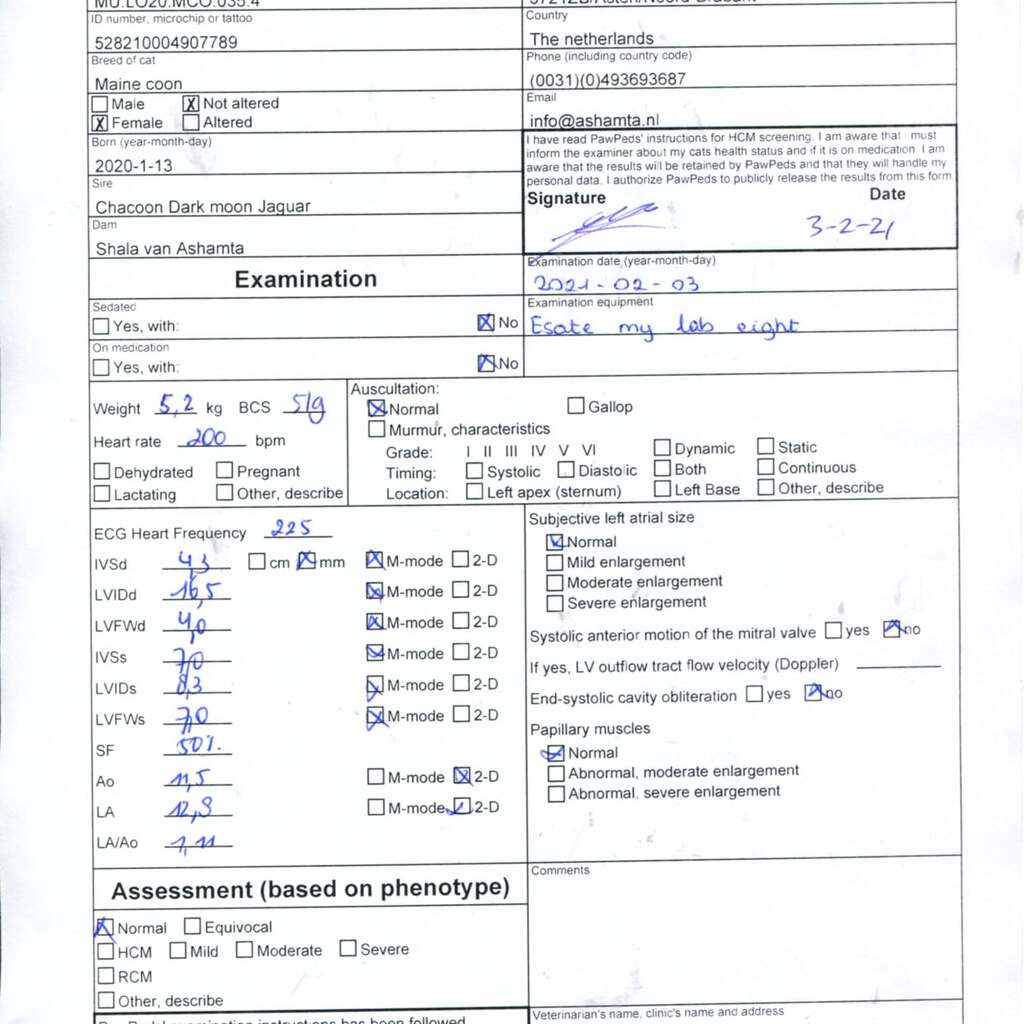 MU.LO20.MCO.035.4
ID number, microchip or tattoo
528210004907789
Breed of cat
Maine coon
Male X Not altered
X Female Altered
Born (year-month-day)
2020-1-13
Sire
Chacoon Dark moon Jaguar
Dam
Shala van Ashamta
Country
The netherlands
Phone (including country code)
(0031)(0)493693687
Email
info@ashamta.nl
I have read PawPeds' instructions for HCM screening. I am aware that I must
inform the examiner about my cats health status and if it is on medication. I am
aware that the results will be retained by PawPeds and that they will handle my
personal data. I authorize PawPeds to publicly release the results from this form.
Signature Date
3-2-21
Examination
Examination date (year-month-day)
2021-02-03
Sedated
Yes, with: No
Examination equipment
Esaote my lab eight
On medication
Yes, with: No
Weight 5,2 kg BCS 5/9
Heart rate 200 bpm
Dehydrated Pregnant
Lactating Other, describe
Auscultation:
Normal Gallop
Murmur, characteristics
Grade: I II III IV V VI Dynamic Static
Timing: Systolic Diastolic Both Continuous
Location: Left apex (sternum) Left Base Other, describe
ECG Heart Frequency 225
IVSd 4,3 cm mm M-mode 2-D
LVIDd 16,5 M-mode 2-D
LVFWd 4,0 M-mode 2-D
IVSs 7,0 M-mode 2-D
LVIDs 8,3 M-mode 2-D
LVFWs 7,0 M-mode 2-D
SF 50%
Ao 11,5 M-mode 2-D
LA M-mode 2-D
LA/Ao 1,11
Subjective left atrial size
Normal
Mild enlargement
Moderate enlargement
Severe enlargement
Systolic anterior motion of the mitral valve yes no
If yes, LV outflow tract flow velocity (Doppler)
End-systolic cavity obliteration yes no
Papillary muscles
Normal
Abnormal, moderate enlargement
Abnormal, severe enlargement
Assessment (based on phenotype)
Normal Equivocal
HCM Mild Moderate Severe
RCM
Other, describe
Comments
Veterinarian's name, clinic's name and address